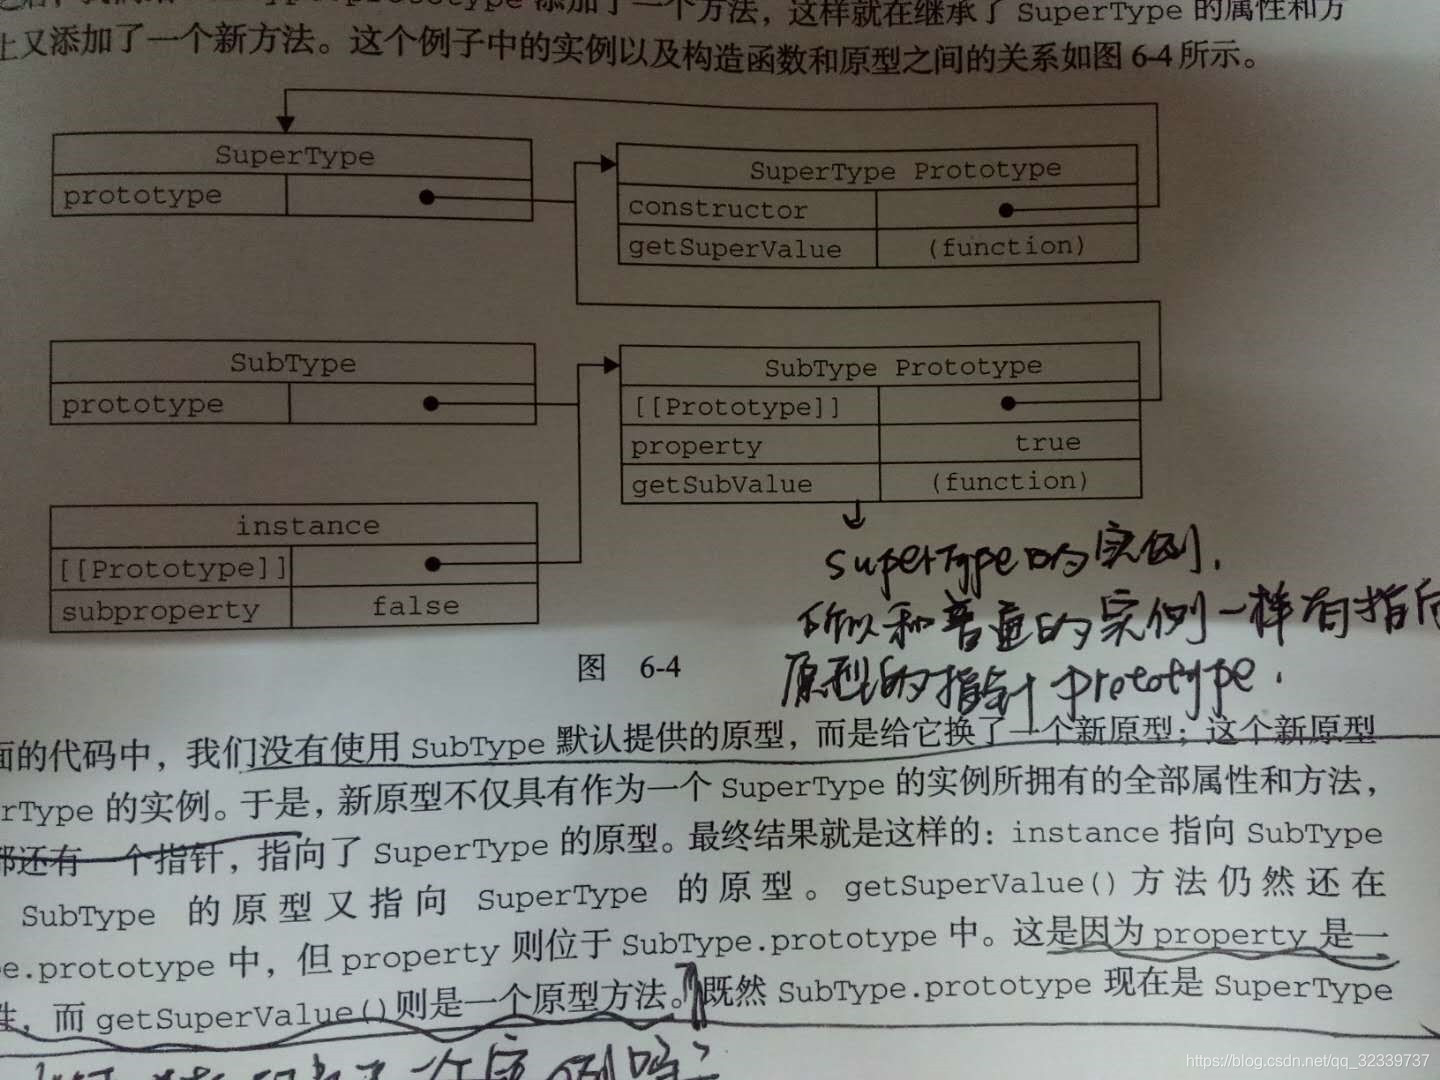 添加了一个方法，这样就在继承了 SuperType 的属性和方
上又添加了一个新方法。这个例子中的实例以及构造函数和原型之间的关系如图 6-4 所示。
SuperType
prototype
SuperType Prototype
constructor
getSuperValue (function)
SubType
prototype
SubType Prototype
[[Prototype]]
property true
getSubValue (function)
instance
[[Prototype]]
subproperty false
superType的实例.
所以和普通的实例一样有指向
原型的指针 prototype.
图 6-4
面的代码中，我们没有使用 SubType 默认提供的原型，而是给它换了一个新原型；这个新原型
rType 的实例。于是，新原型不仅具有作为一个 SuperType 的实例所拥有的全部属性和方法，
部还有一个指针，指向了 SuperType 的原型。最终结果就是这样的：instance 指向 SubType
SubType 的原型又指向 SuperType 的原型。getSuperValue() 方法仍然还在
e.prototype 中，但 property 则位于 SubType.prototype 中。这是因为 property 是一
性，而 getSuperValue() 则是一个原型方法。既然 SubType.prototype 现在是 SuperType
个实例吗?
https://blog.csdn.net/qq_32339737